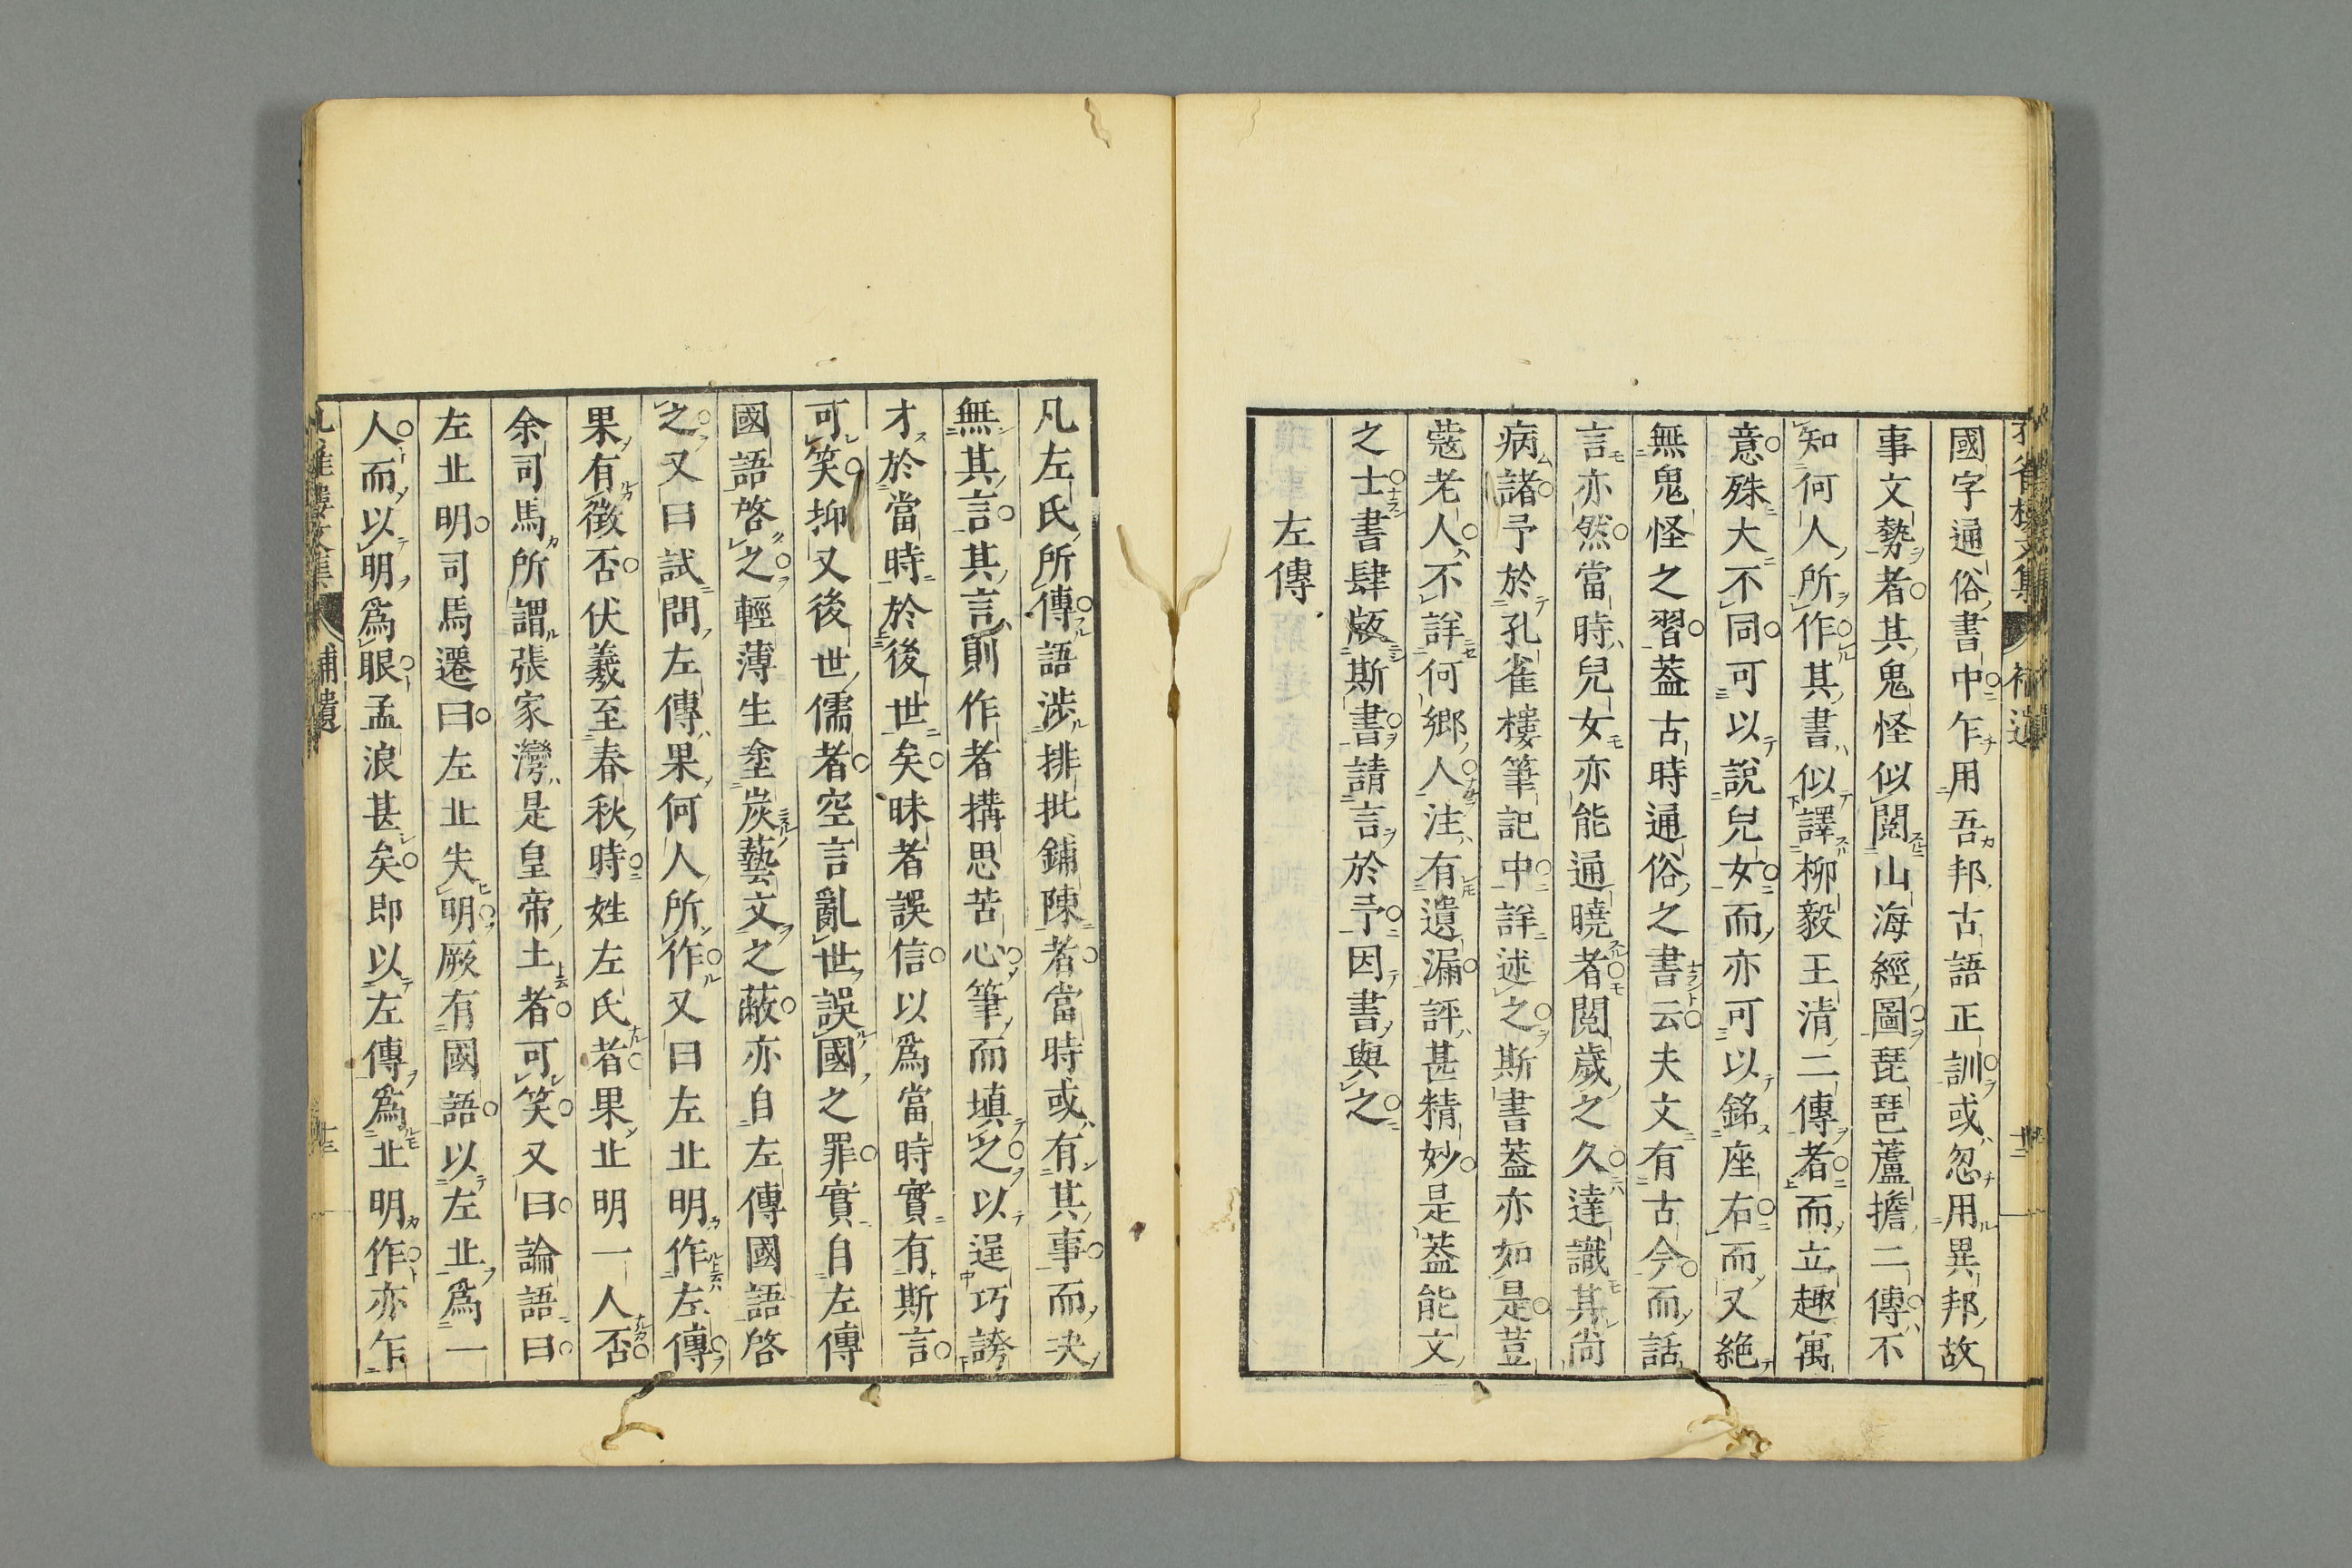 國字通俗書中乍用吾邦古語正訓或忽用異邦故
事文勢者其鬼怪似閲山海經圖琵琶蘆擔二傳不
知何人所作其書似譯柳毅王清二傳者而立趣寓
意殊大不同可以說兒女而亦可以銘座右而又絶
無鬼怪之習蓋古時通俗之書云夫文有古今而話
言亦然當時兒女亦能通曉者閲歲之久達識其尚
病諸予於孔雀樓筆記中詳述之斯書蓋亦如是荳
蔻老人不詳何鄉人注有遺漏評甚精妙是蓋能文
之士書肆版斯書請言於予因書與之
左傳
凡左氏所傳語涉排批鋪陳者當時或有其事而决
無其言其言則作者搆思苦心筆而填乏以逞巧誇
才於當時於後世矣昧者誤信以爲當時實有斯言
可笑抑又後世儒者空言亂世誤國之罪實自左傳
國語啓之輕薄生塗炭藝文之蔽亦自左傳國語啓
之又曰試問左傳果何人所作又曰左丠明作左傳
果有徵否伏羲至春秋時姓左氏者果丠明一人否
余司馬所謂張家灣是皇帝土者可笑又曰論語曰
左丠明司馬遷曰左丠失明厥有國語以左丠爲一
人而以明爲眼孟浪甚矣即以左傳爲丠明作亦乍
孔雀樓文集 補遺